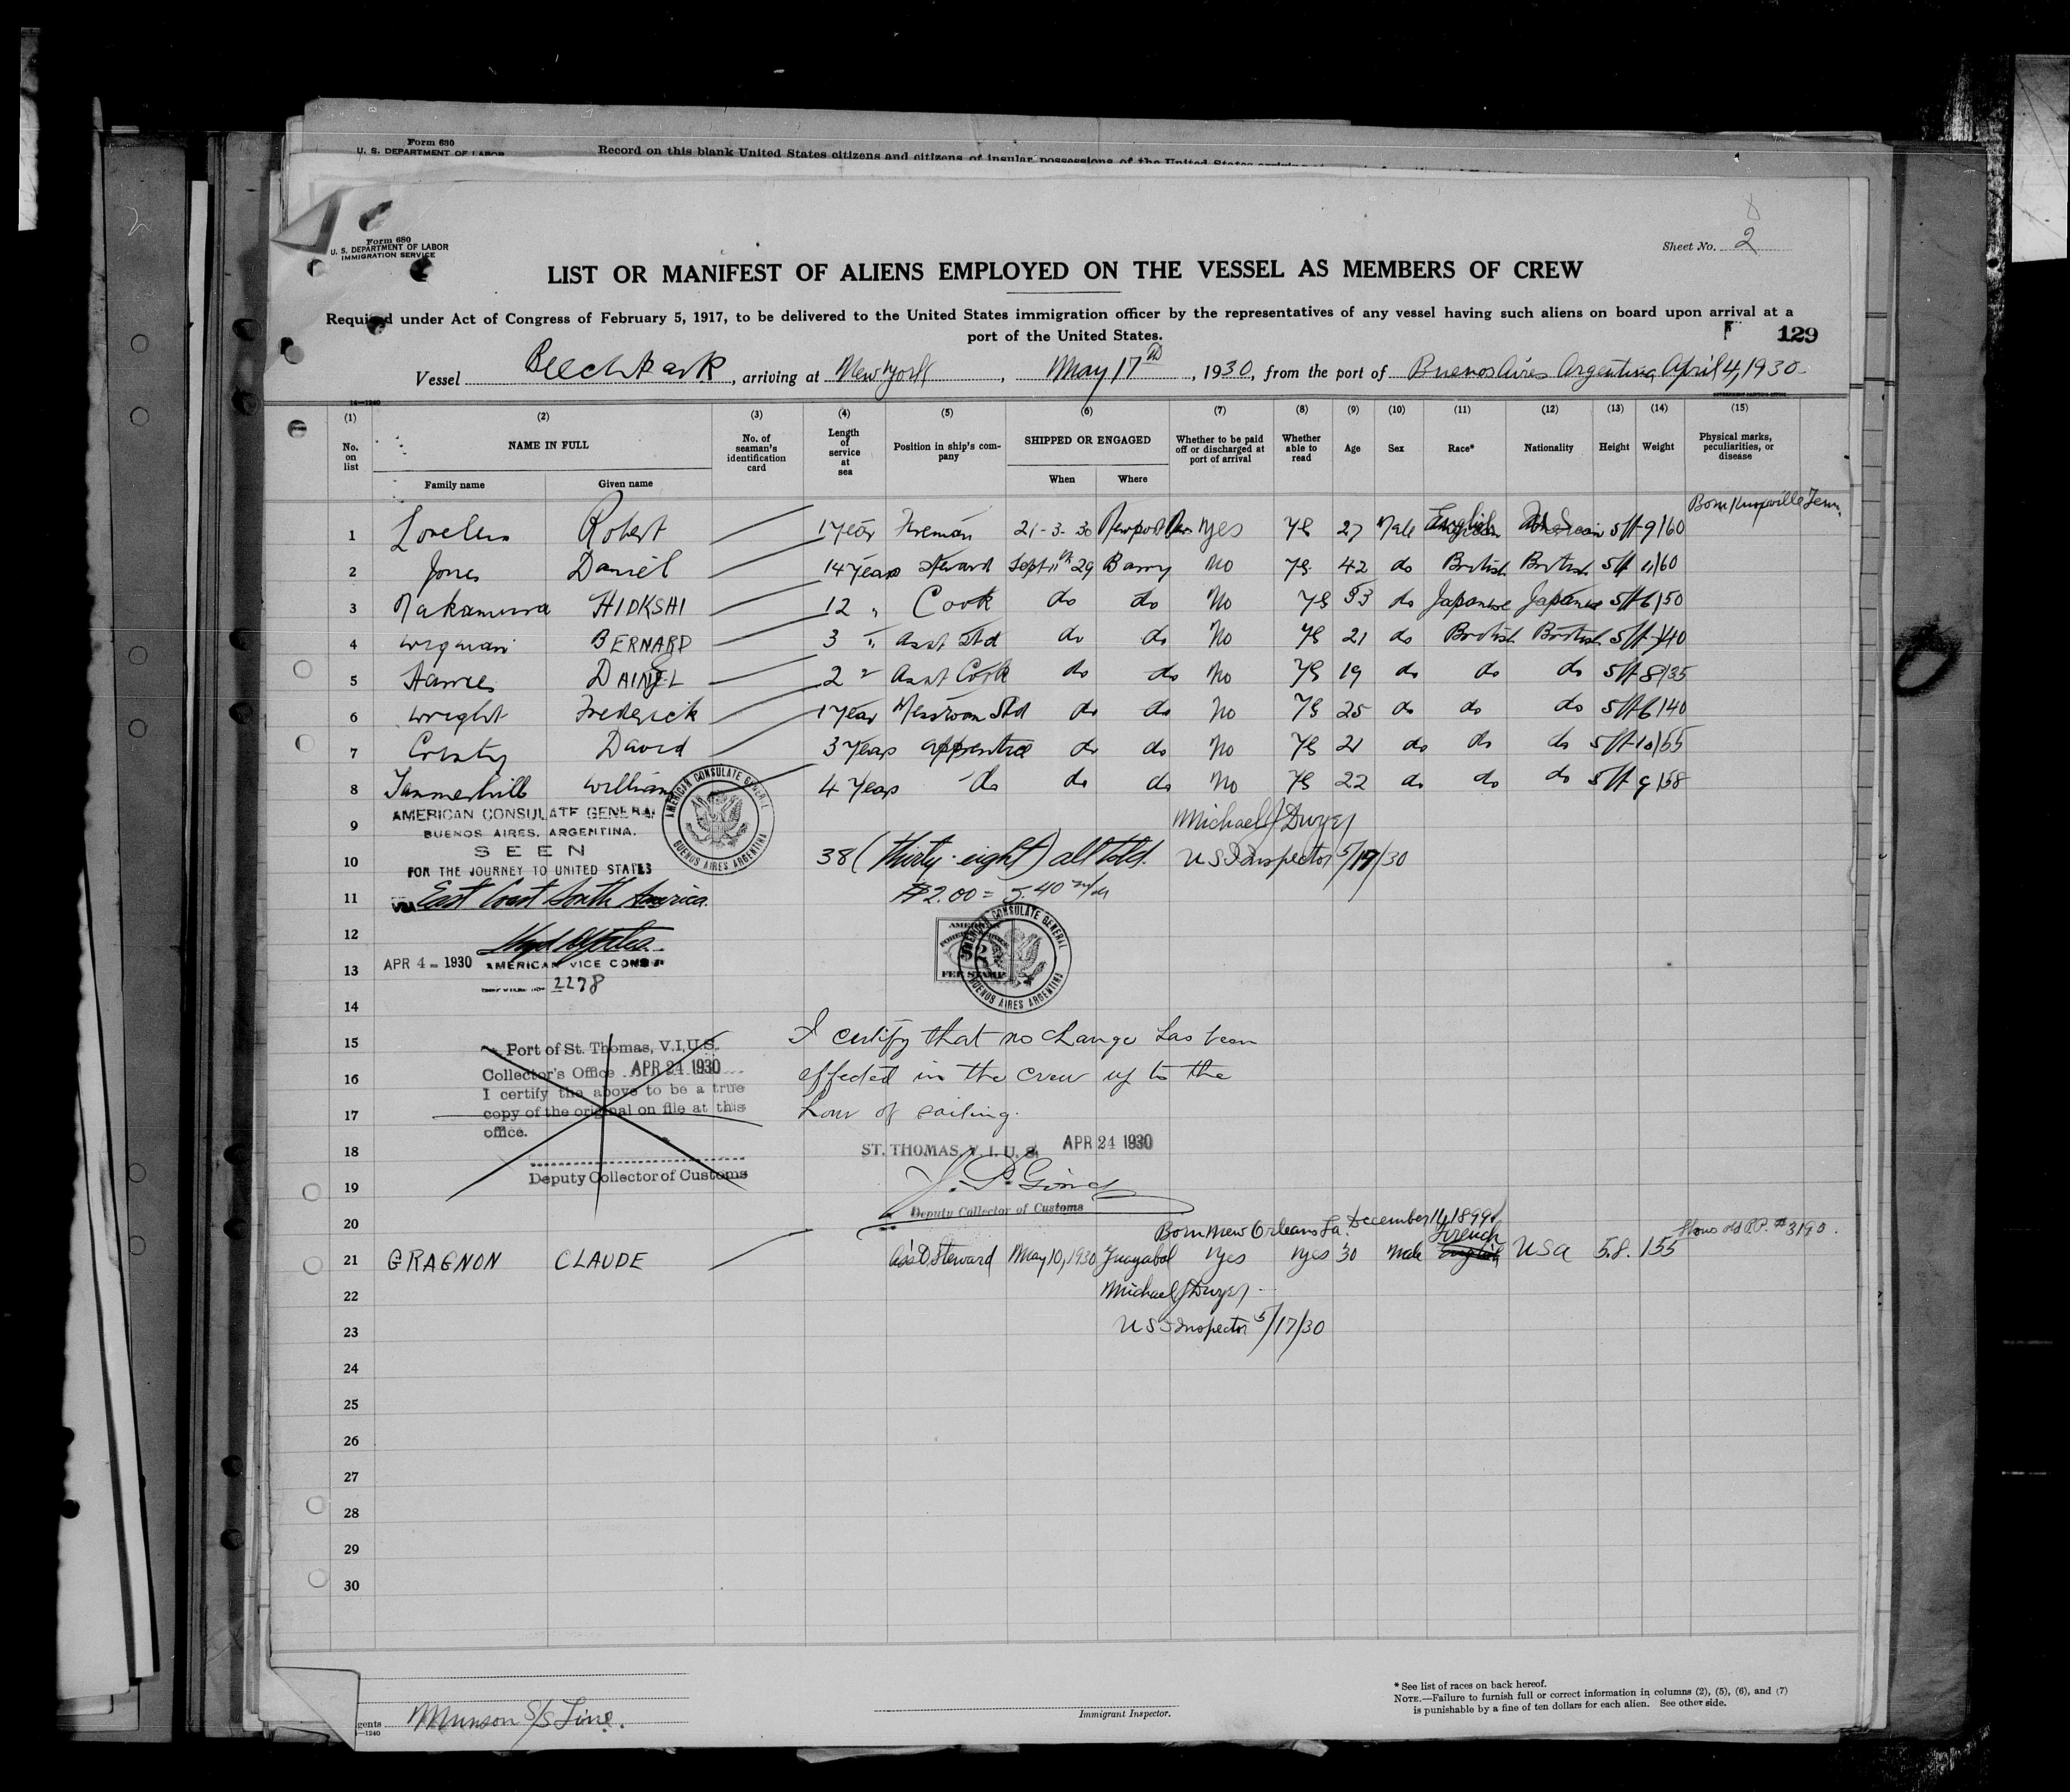 Form 630
U. S. DEPARTMENT OF LABOR
Record on this blank United States citizens and citizens of insular possessions of the United States
Form 680
U. S. DEPARTMENT OF LABOR
IMMIGRATION SERVICE
Sheet No. 2
LIST OR MANIFEST OF ALIENS EMPLOYED ON THE VESSEL AS MEMBERS OF CREW
Required under Act of Congress of February 5, 1917, to be delivered to the United States immigration officer by the representatives of any vessel having such aliens on board upon arrival at a
port of the United States.
129
Vessel Beechpark, arriving at New York, May 17, 1930, from the port of Buenos Aires Argentina April 4, 1930
14-1240
(1) (2) (3) (4) (5) (6) (7) (8) (9) (10) (11) (12) (13) (14) (15)
No. on list
NAME IN FULL
Family name Given name
No. of seaman's identification card
Length of service at sea
Position in ship's company
SHIPPED OR ENGAGED
When Where
Whether to be paid off or discharged at port of arrival
Whether able to read
Age
Sex
Race*
Nationality
Height
Weight
Physical marks, peculiarities, or disease
Born Knoxville Tenn.
1 Robert 1 year Fireman 21-3-30 Newport yes yes 27 Male English 5ft 9 160
2 Jones Daniel 14 years Steward Sept 11th 29 Barry No yes 42 do British British 5ft 11 160
3 Nakamura HIDKSHI 12 " Cook do do No yes 53 do Japanese Japanese 5ft 6 150
4 BERNARD 3 " Asst Std do do No yes 21 do British British 5ft 140
5 DAINEL 2 " Asst Cook do do No yes 19 do do do 5ft 8 135
6 Wright Frederick 1 year Messroom Std do do No yes 25 do do do 5ft 6 140
7 David 3 years apprentice do do No yes 21 do do do 5ft 10 155
8 William 4 years do do do No yes 22 do do do 5ft 9 158
AMERICAN CONSULATE GENERAL
BUENOS AIRES, ARGENTINA.
SEEN
FOR THE JOURNEY TO UNITED STATES
VIA East Coast South America.
AMERICAN CONSULATE GENERAL
BUENOS AIRES ARGENTINA
9 Michael J Dwyer
10 38 (thirty-eight) all told. U S I Inspector 5/17/30
11 $2.00 = 5.40 m/n
12
13 APR 4 - 1930 AMERICAN VICE CONSUL
2278
AMERICAN
FEE STAMP
AMERICAN CONSULATE GENERAL
BUENOS AIRES ARGENTINA
14
15 I certify that no change has been
16 effected in the crew up to the
17 hour of sailing.
Port of St. Thomas, V.I.U.S.
Collector's Office APR 24 1930
I certify the above to be a true
copy of the original on file at this
office.
Deputy Collector of Customs
18 ST. THOMAS, V. I. U. S. APR 24 1930
19
Deputy Collector of Customs
20 Born New Orleans La. December 14, 1899 French Shows old P.P. #3190.
21 GRAGNON CLAUDE Ass't Steward May 10, 1930 yes yes 30 Male English USA 5.8. 155
22 Michael J Dwyer
23 U S I Inspector 5/17/30
24
25
26
27
28
29
30
gents Munson S/S Line.
1240
Immigrant Inspector.
* See list of races on back hereof.
NOTE.—Failure to furnish full or correct information in columns (2), (5), (6), and (7)
is punishable by a fine of ten dollars for each alien. See other side.